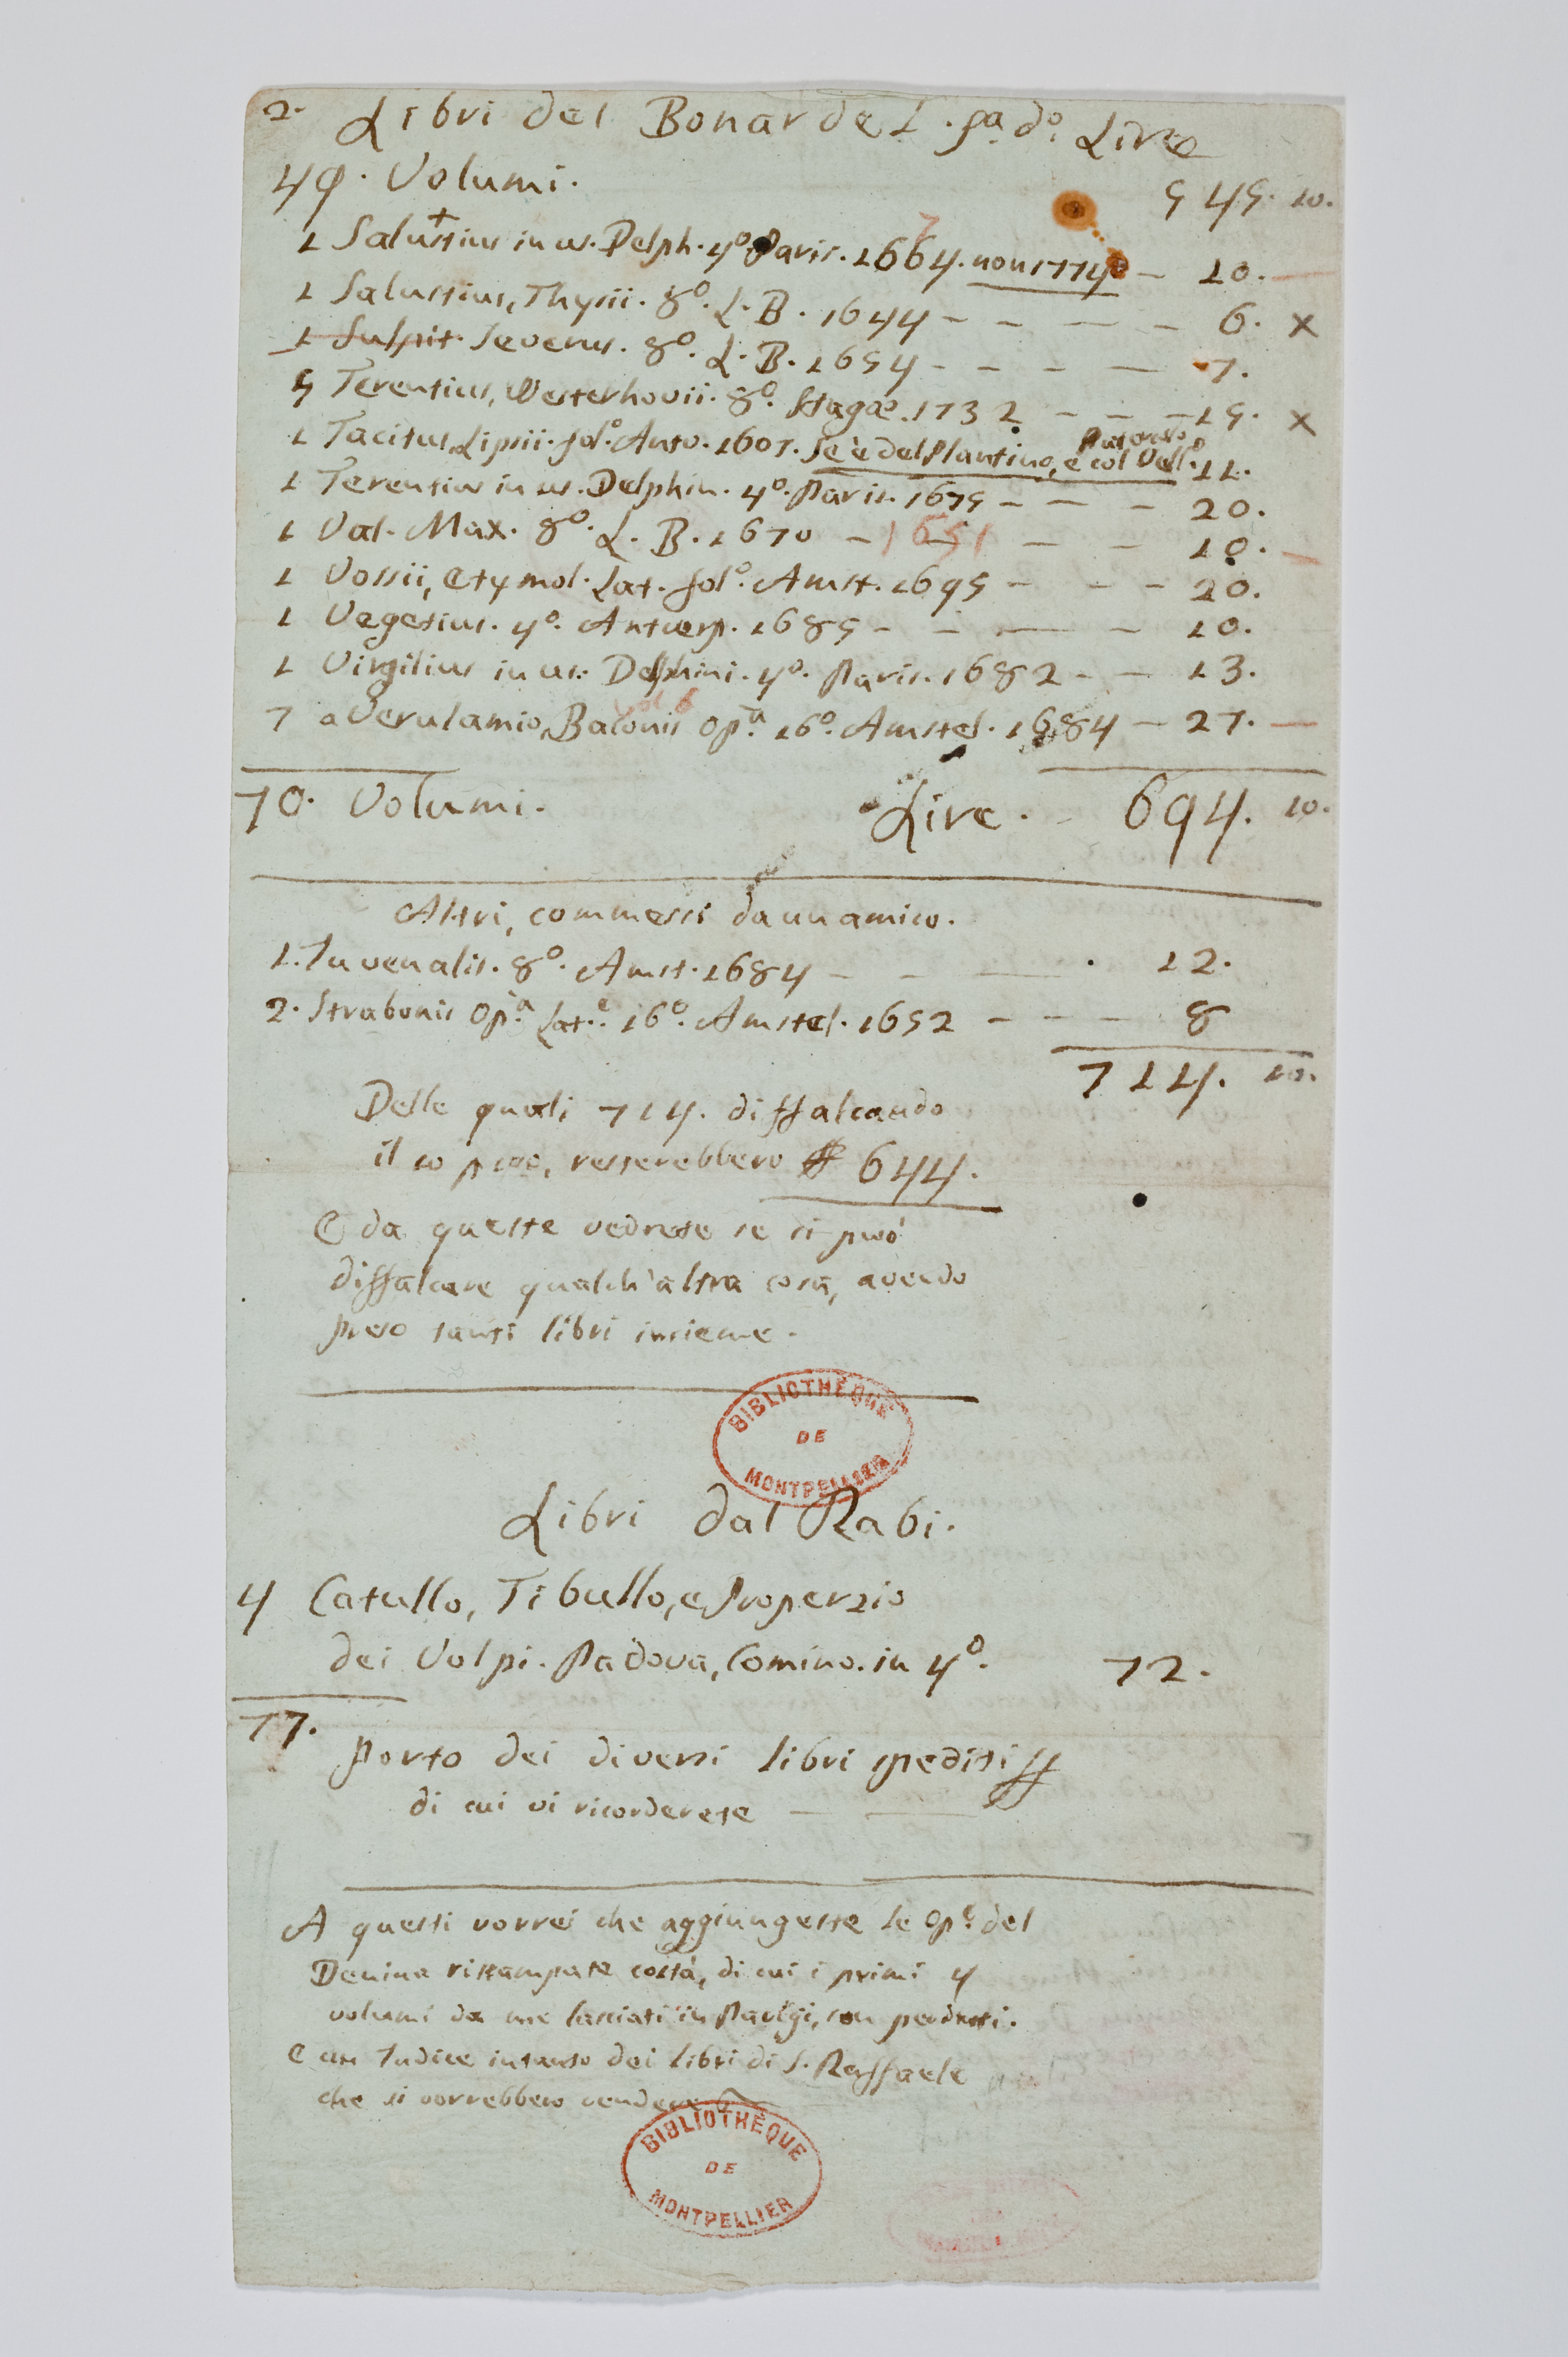 2. Libri del Bonardel. pa. do. Lire
49. Volumi. 545. 10.
1 Salustius in us. Delph. 4o. Paris. 1664. non 1774 — 10.
7
1 Salustius, Thysii. 8o. L. B. 1644 - - — - 6. x
1 Sulpit. Severus. 8o. L. B. 1654 - - - — 7.
5 Terentius, Westerhovii. 8o. Hagæ. 1732 - - - 15. x
1 Tacitus, Lipsii. folo. Antv. 1607. Se è del Plantino, e col Vello. Paterculo 11.
1 Terentius in us. Delphin. 4o. Paris. 1675 - - - 20.
1 Val. Max. 8o. L. B. 1670 - 1651 - - 10. —
1 Vossii, Etymol. Lat. folo. Amst. 1695 - - - 20.
1 Vegetius. 4o. Antuerp. 1685 - - — - 10.
1 Virgilius in us: Delphini. 4o. Paris. 1682 - - 13.
vol 6
7 a Verulamio, Baconis opa. 16o. Amstel. 1684 - 27. —
70. Volumi. Lire. 694. 10.
Altri, commessi da un amico.
1. Juvenalis. 8o. Amst. 1684 - - — 12.
2. Strabonis opa. Lat.e 16o. Amstel. 1652 - - - 8
714. 10.
Delle quali 714. diffalcando
il 10 p %, resterebbero 644.
E da queste vedrete se si può
diffalcare qualch'altra cosa, avendo
preso tanti libri insieme.
BIBLIOTHÈQUE
DE
MONTPELLIER
Libri dal Rabi.
4 Catullo, Tibullo, e Properzio
dei Volpi. Padova, Comino. in 4o. 72.
77.
Porto dei diversi libri spediti
di cui vi ricorderete — —
A questi vorrei che aggiungeste le Ope. del
Denina ristampate costà, di cui i primi 4
volumi da me lasciati in Parigi, son perduti.
E un Indice intanto dei libri di S. Raffaele
che si vorrebbero vendere
BIBLIOTHÈQUE
DE
MONTPELLIER